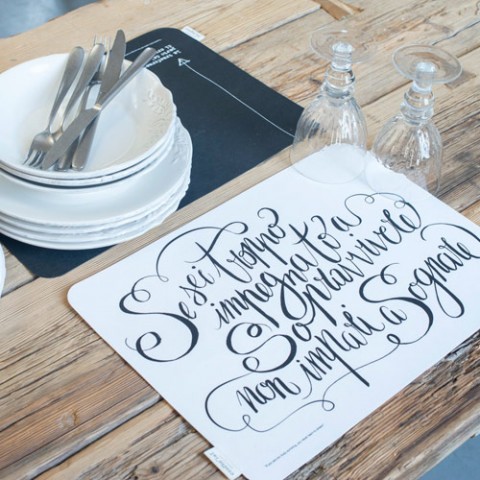 Se sei troppo
impegnato a
Sopravvivere
non impari a Sognare